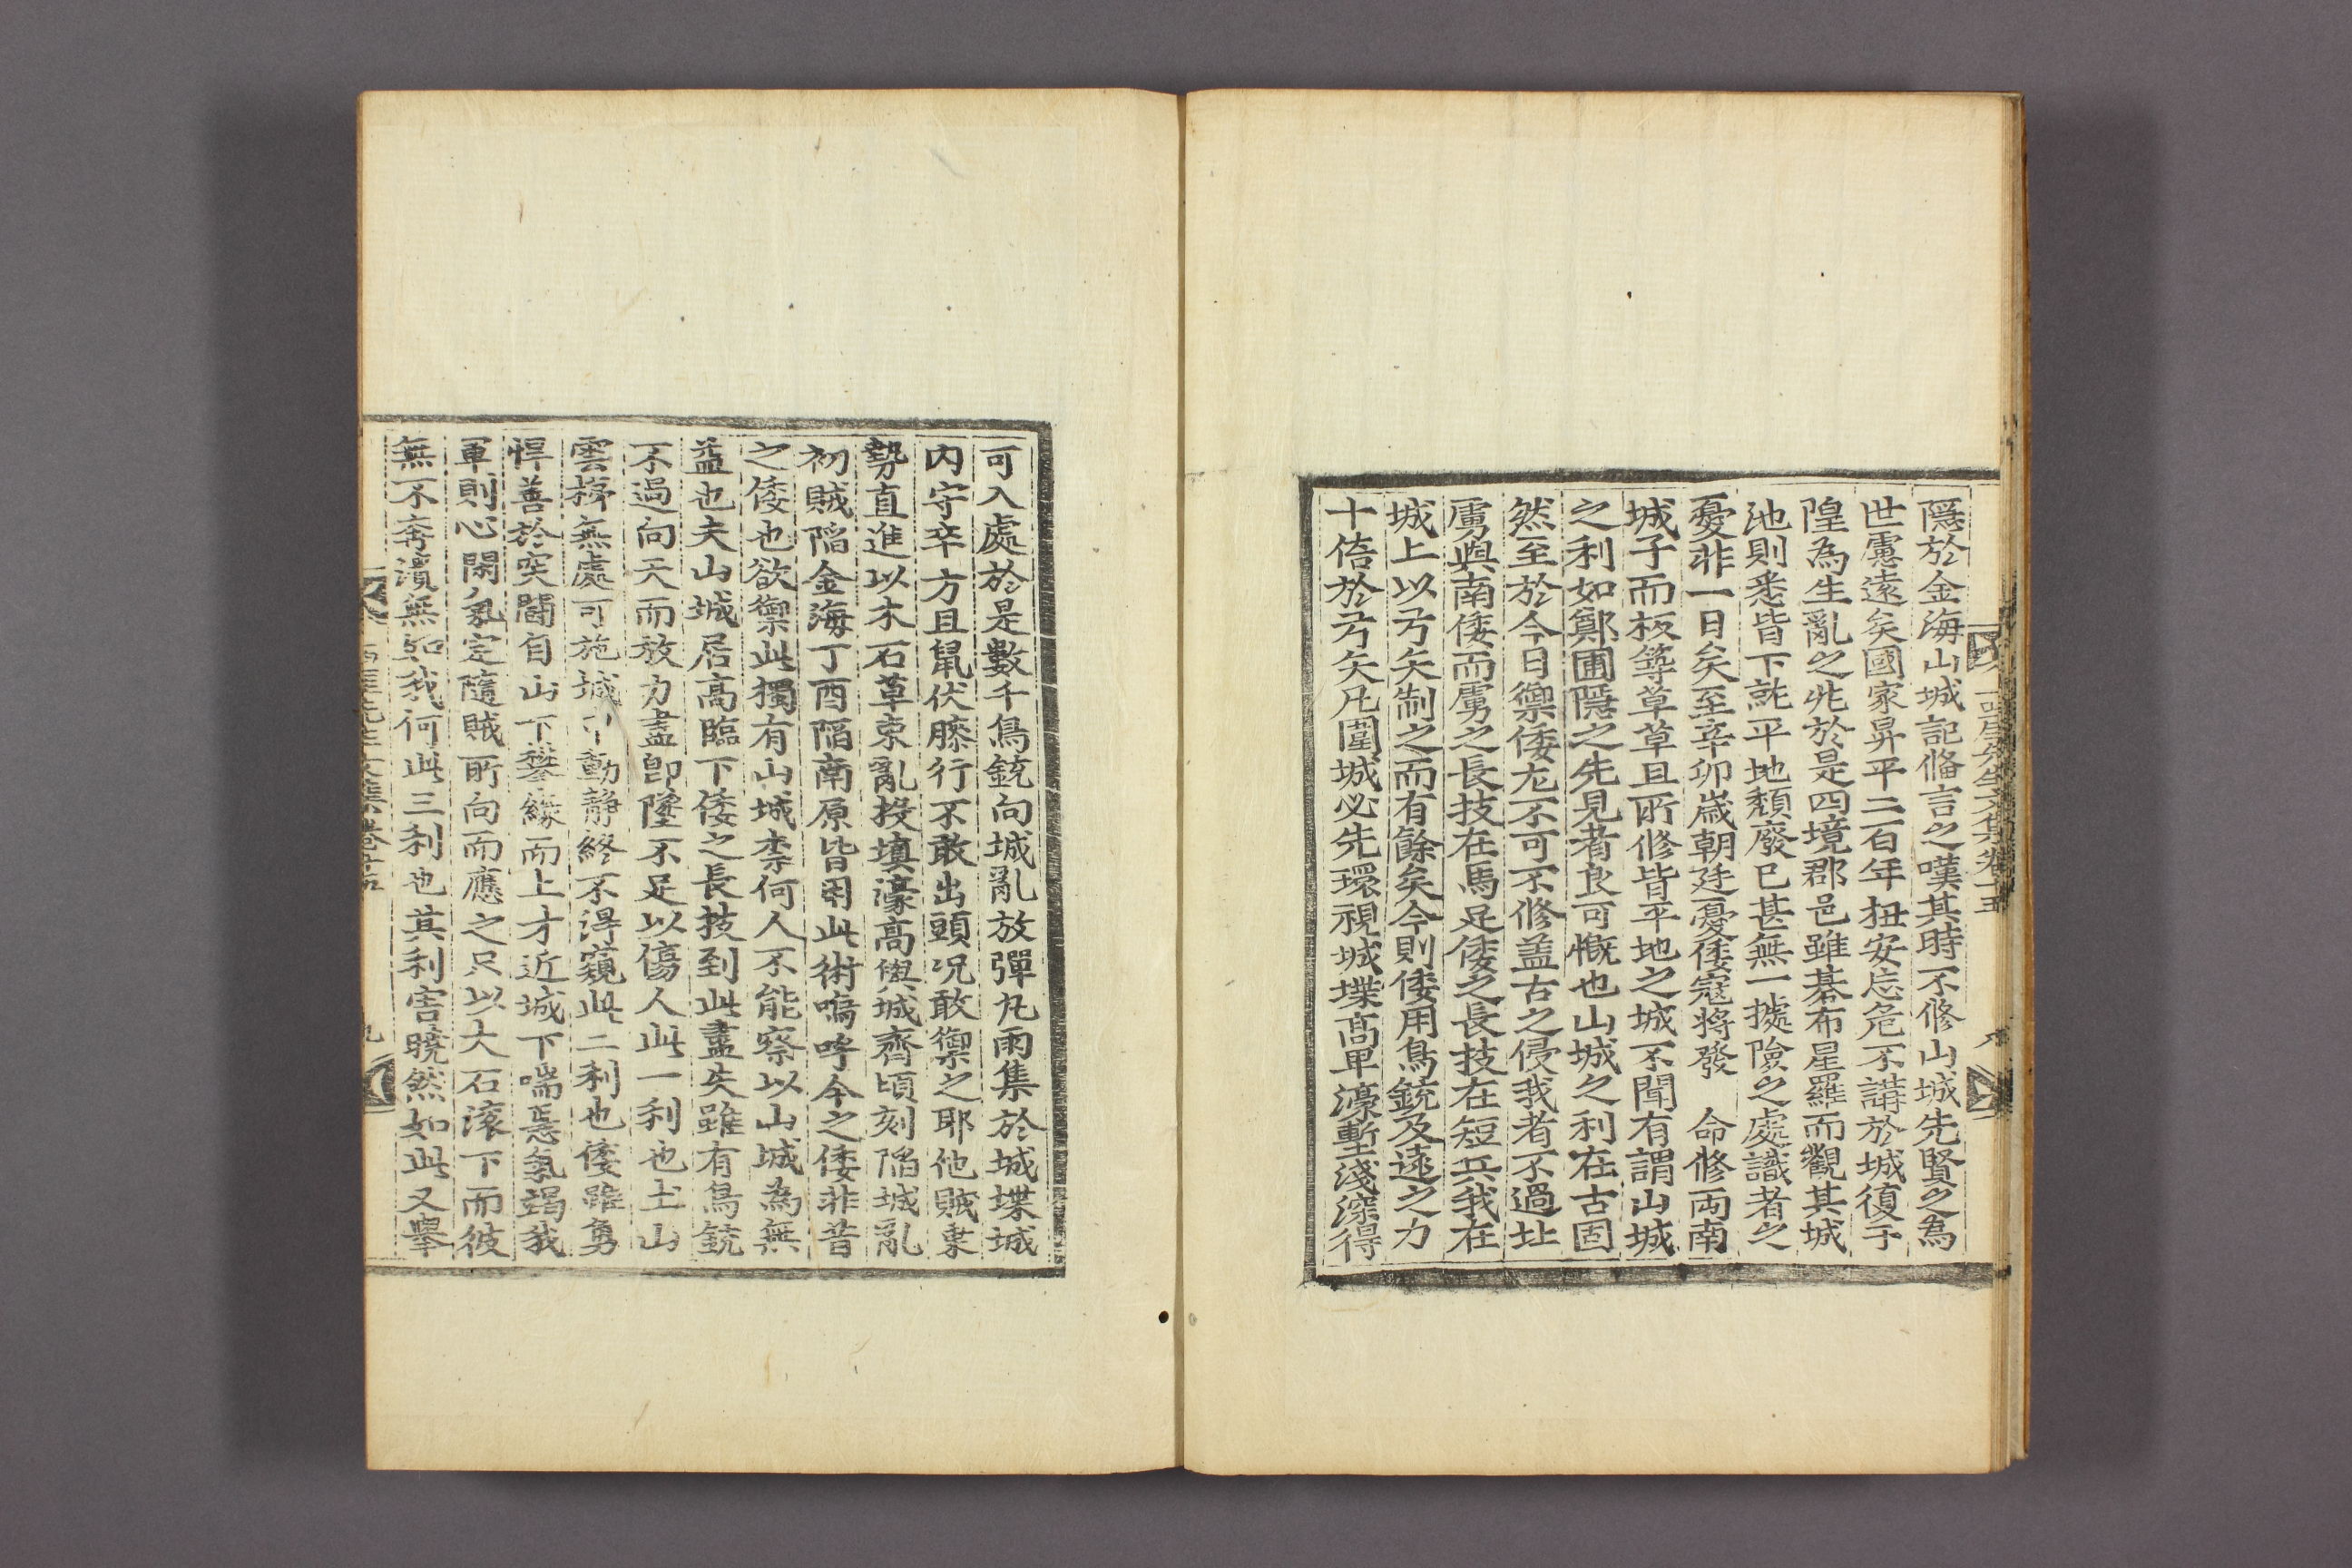 隱於金海山城記備言之嘆其時不修山城先賢之為
世慮遠矣國家昇平二百年狃安忘危不講於城復于
隍為生亂之兆於是四境郡邑雖碁布星羅而觀其城
池則悉皆下就平地頹廢已甚無一據險之處識者之
憂非一日矣至辛卯歲朝廷憂倭寇將發 命修兩南
城子而板築草草且所修皆平地之城不聞有謂山城
之利如鄭圃隱之先見者良可慨也山城之利在古固
然至於今日禦倭尤不可不修盖古之侵我者不過北
虜與南倭而虜之長技在馬足倭之長技在短兵我在
城上以弓矢制之而有餘矣今則倭用鳥銃及遠之力
十倍於弓矢凡圍城必先環視城堞高卑濠塹淺深得
西厓先生文集卷十五
可入處於是數千鳥銃向城亂放彈丸雨集於城堞城
內守卒方且鼠伏膝行不敢出頭况敢禦之耶他賊乘
勢直進以木石草束亂投填濠高與城齊頃刻陷城亂
初賊陷金海丁酉陷南原皆用此術嗚呼今之倭非昔
之倭也欲禦此獨有山城柰何人不能察以山城為無
益也夫山城居高臨下倭之長技到此盡失雖有鳥銃
不過向天而放力盡卽墜不足以傷人此一利也土山
雲梯無處可施城中動靜終不得窺此二利也倭雖勇
悍善於突鬪自山下攀緣而上才近城下喘息氣竭我
軍則心閑氣定隨賊所向而應之只以大石滚下而彼
無不奔潰無如我何此三利也其利害曉然如此又擧
西厓先生文集卷十五 九